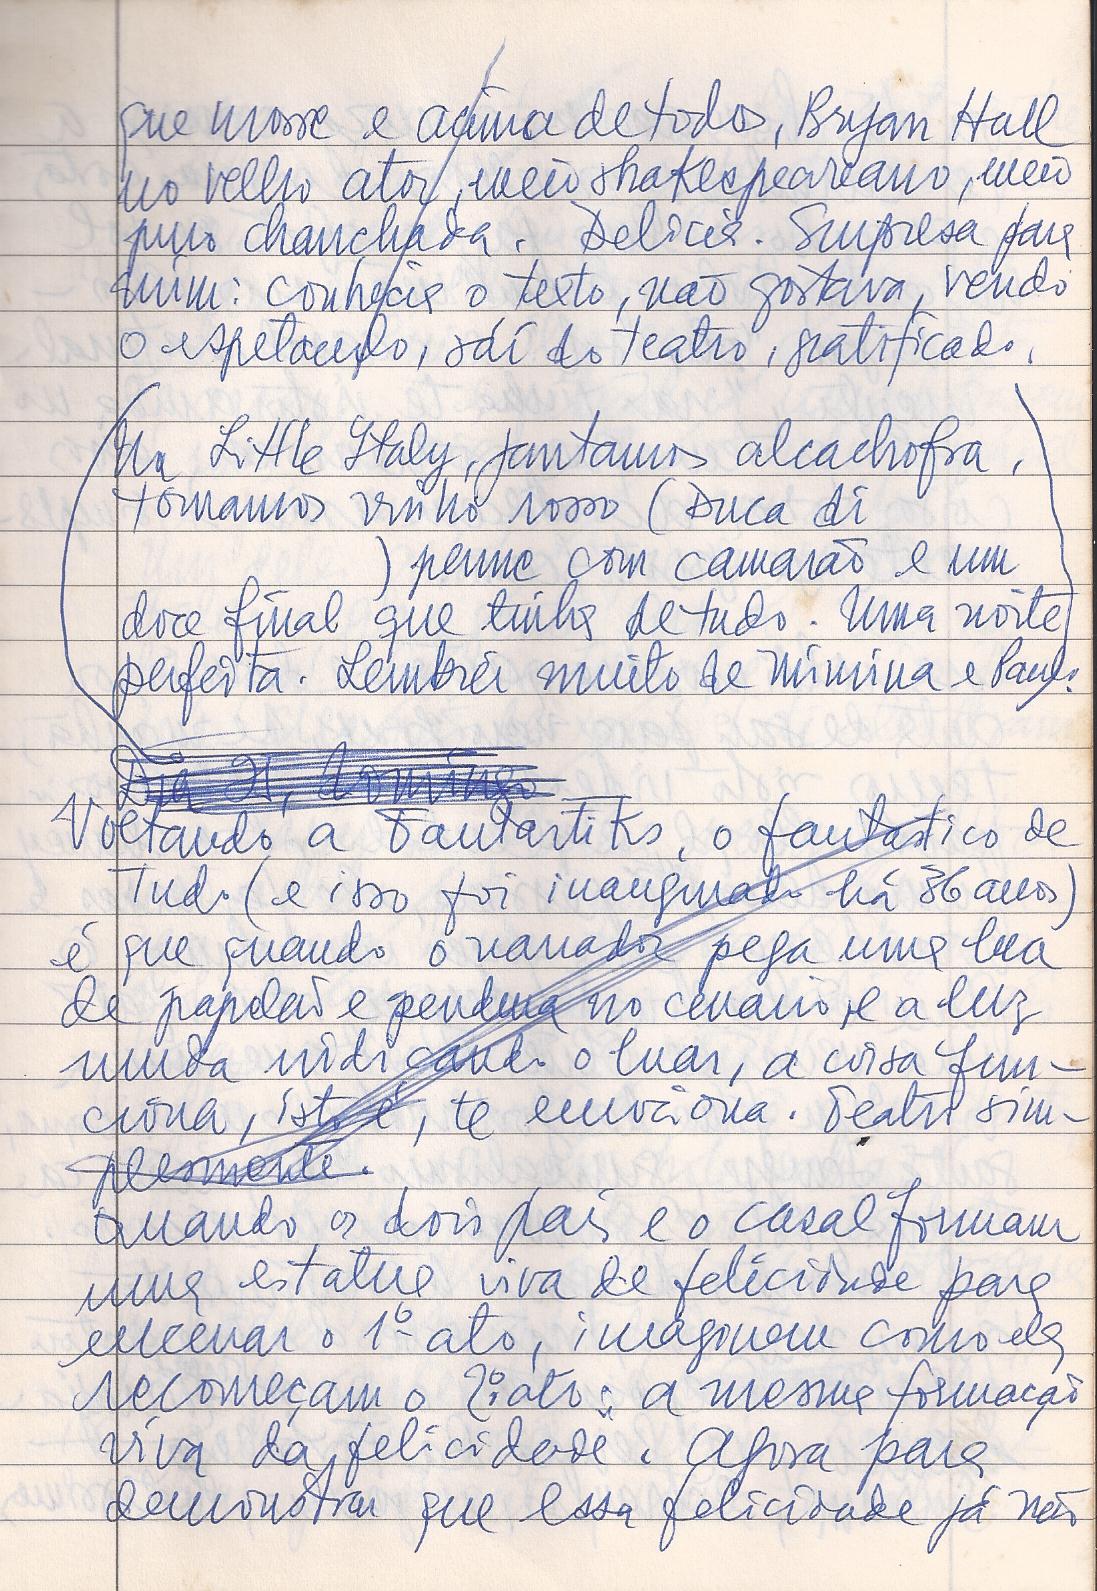 que morre e acima de todos, Bryan Hull
no velho ator, meio shakespeareano, meio
puro chanchada. Delicia. Surpresa para
mim: conhecia o texto, não gostava, vendo
o espetáculo, saí do teatro, gratificado.
Na Little Italy, jantamos alcachofra,
tomamos vinho rosso (Duca di
) penne com camarão e um
doce final que tinha de tudo. Uma noite
perfeita. Lembrei muito de Mimina e
Dia 21, domingo
Voltando a Fantastiks, o fantástico de
tudo (e isso foi inaugurado há 36 anos)
é que quando o narrador pega uma lua
de papelão e pendura no cenário, e a luz
muda indicando o luar, a coisa fun-
ciona, isto é, te emociona. Teatro sim-
plesmente.
Quando os dois pais e o casal formam
uma estatua viva de felicidade para
encenar o 1º ato, imaginem como eles
recomeçam o 2º ato: a mesma formação
viva da felicidade. Agora para
demonstrar que essa felicidade já não